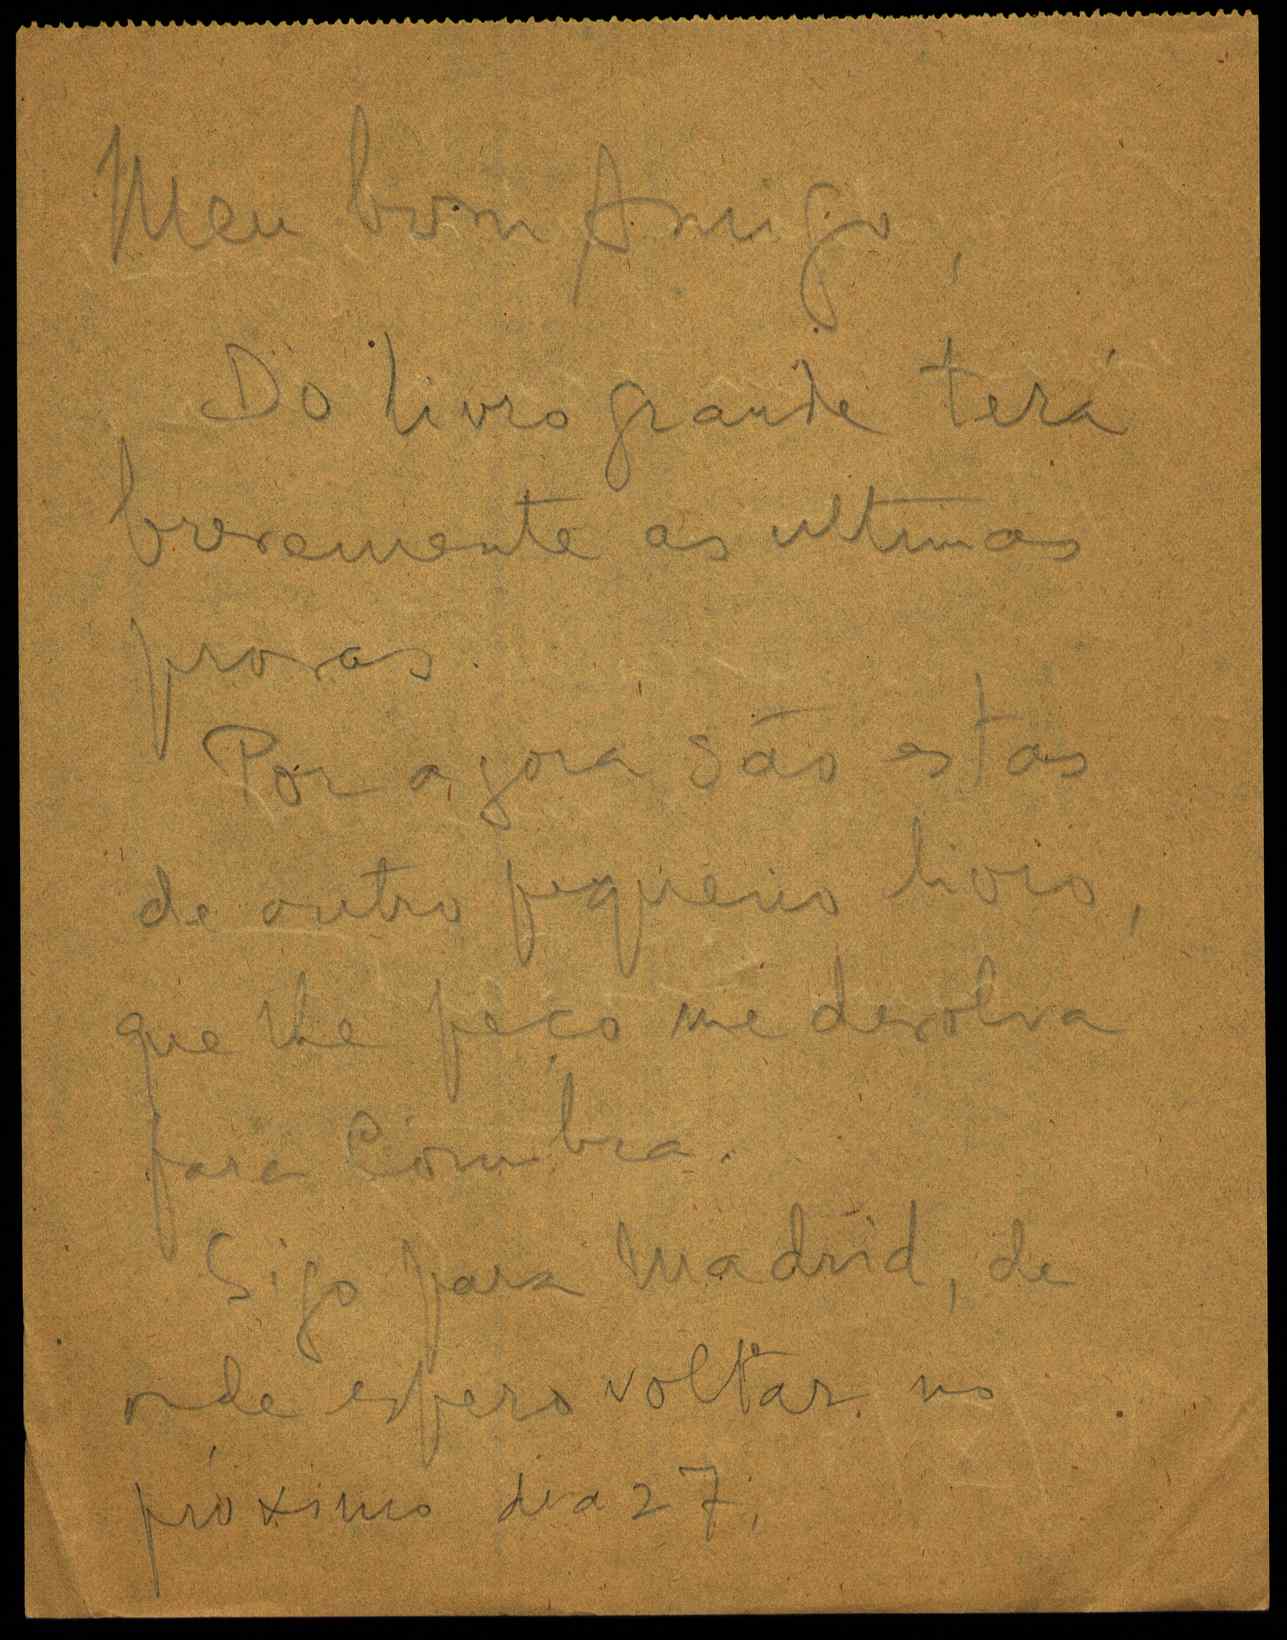 Meu bom Amigo,
Do livro grande terá
brevemente as ultimas
provas.
Por agora são estas
de outro pequeno livro,
que lhe peço me devolva
para Coimbra.
Sigo para Madrid, de
onde espero voltar no
próximo dia 27.